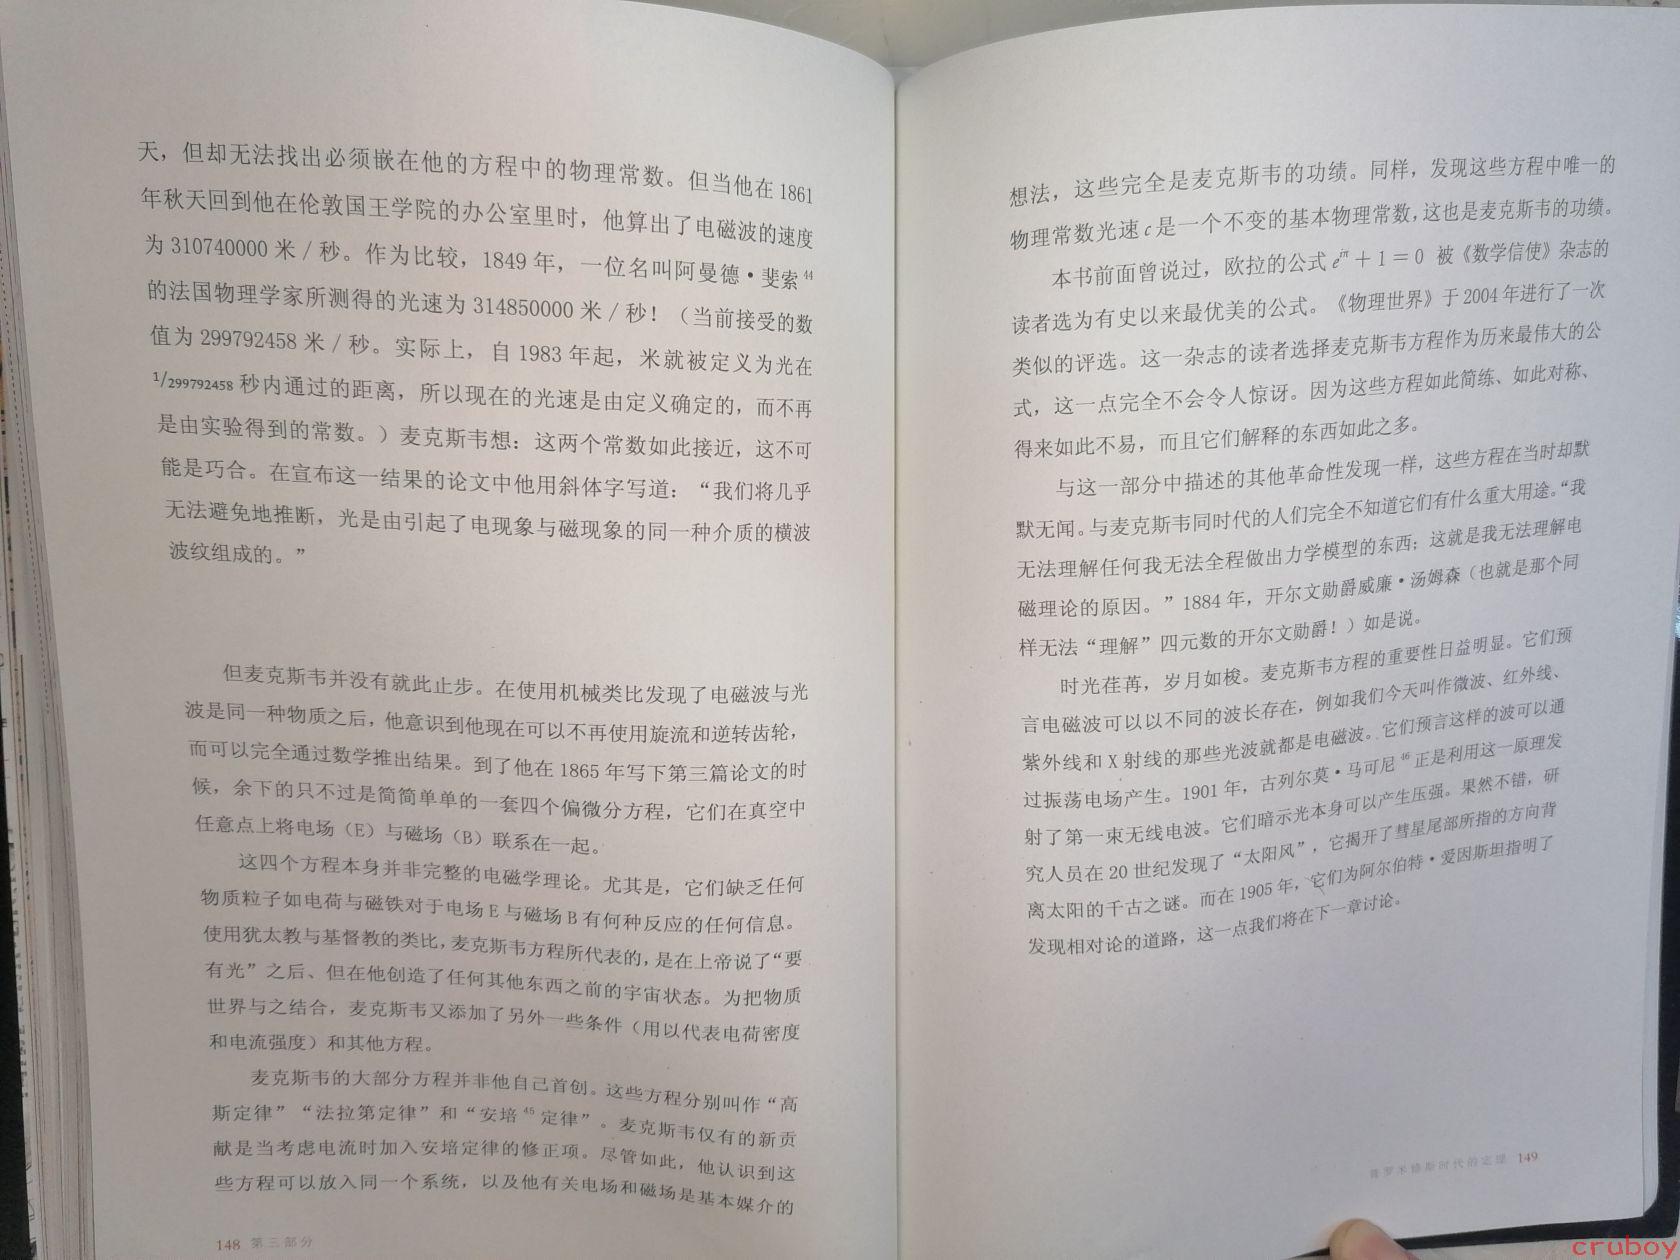 天，但却无法找出必须嵌在他的方程中的物理常数。但当他在 1861
年秋天回到他在伦敦国王学院的办公室里时，他算出了电磁波的速度
为 310740000 米 / 秒。作为比较，1849 年，一位名叫阿曼德·斐索 44
的法国物理学家所测得的光速为 314850000 米 / 秒！（当前接受的数
值为 299792458 米 / 秒。实际上，自 1983 年起，米就被定义为光在
1/299792458 秒内通过的距离，所以现在的光速是由定义确定的，而不再
是由实验得到的常数。）麦克斯韦想：这两个常数如此接近，这不可
能是巧合。在宣布这一结果的论文中他用斜体字写道：“我们将几乎
无法避免地推断，光是由引起了电现象与磁现象的同一种介质的横波
波纹组成的。”
但麦克斯韦并没有就此止步。在使用机械类比发现了电磁波与光
波是同一种物质之后，他意识到他现在可以不再使用旋流和逆转齿轮，
而可以完全通过数学推出结果。到了他在 1865 年写下第三篇论文的时
候，余下的只不过是简简单单的一套四个偏微分方程，它们在真空中
任意点上将电场（E）与磁场（B）联系在一起。
这四个方程本身并非完整的电磁学理论。尤其是，它们缺乏任何
物质粒子如电荷与磁铁对于电场 E 与磁场 B 有何种反应的任何信息。
使用犹太教与基督教的类比，麦克斯韦方程所代表的，是在上帝说了“要
有光”之后、但在他创造了任何其他东西之前的宇宙状态。为把物质
世界与之结合，麦克斯韦又添加了另外一些条件（用以代表电荷密度
和电流强度）和其他方程。
麦克斯韦的大部分方程并非他自己首创。这些方程分别叫作“高
斯定律”“法拉第定律”和“安培 45 定律”。麦克斯韦仅有的新贡
献是当考虑电流时加入安培定律的修正项。尽管如此，他认识到这
些方程可以放入同一个系统，以及他有关电场和磁场是基本媒介的
148 第三部分
想法，这些完全是麦克斯韦的功绩。同样，发现这些方程中唯一的
物理常数光速 c 是一个不变的基本物理常数，这也是麦克斯韦的功绩。
本书前面曾说过，欧拉的公式 e^{iπ} + 1 = 0 被《数学信使》杂志的
读者选为有史以来最优美的公式。《物理世界》于 2004 年进行了一次
类似的评选。这一杂志的读者选择麦克斯韦方程作为历来最伟大的公
式，这一点完全不会令人惊讶。因为这些方程如此简练、如此对称、
得来如此不易，而且它们解释的东西如此之多。
与这一部分中描述的其他革命性发现一样，这些方程在当时却默
默无闻。与麦克斯韦同时代的人们完全不知道它们有什么重大用途。“我
无法理解任何我无法全程做出力学模型的东西；这就是我无法理解电
磁理论的原因。”1884 年，开尔文勋爵威廉·汤姆森（也就是那个同
样无法“理解”四元数的开尔文勋爵！）如是说。
时光荏苒，岁月如梭。麦克斯韦方程的重要性日益明显。它们预
言电磁波可以以不同的波长存在，例如我们今天叫作微波、红外线、
紫外线和 X 射线的那些光波就都是电磁波。它们预言这样的波可以通
过振荡电场产生。1901 年，古列尔莫·马可尼 46 正是利用这一原理发
射了第一束无线电波。它们暗示光本身可以产生压强。果然不错，研
究人员在 20 世纪发现了“太阳风”，它揭开了彗星尾部所指的方向背
离太阳的千古之谜。而在 1905 年，它们为阿尔伯特·爱因斯坦指明了
发现相对论的道路，这一点我们将在下一章讨论。
普罗米修斯时代的定理 149
cruboy